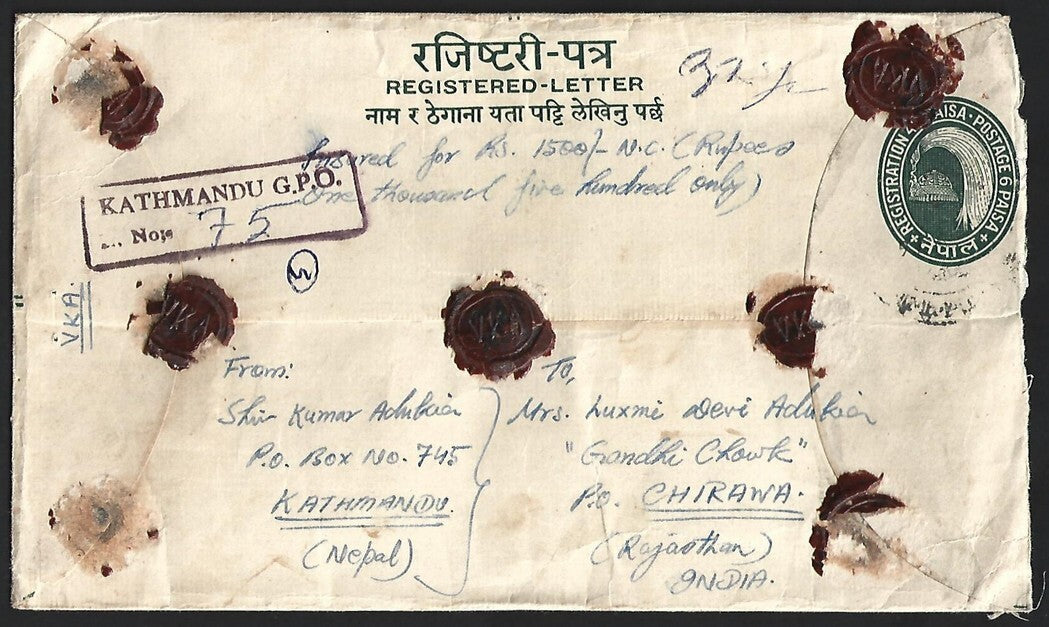 रजिष्टरी-पत्र
REGISTERED-LETTER
नाम र ठेगाना यता पट्टि लेखिनु पर्छ
REGISTRATION PAISA · POSTAGE 6 PAISA
नेपाल
VKA
Insured for Rs. 1500/- N.C. (Rupees
One thousand five hundred only)
KATHMANDU G.P.O.
No: 75
3
VKA
VKA
VKA
VKA
From:
Shiv Kumar Adukia
P.O. Box No. 745
KATHMANDU.
(Nepal)
To,
Mrs. Luxmi Devi Adukia
"Gandhi Chowk"
P.O. CHIRAWA.
(Rajasthan)
INDIA.